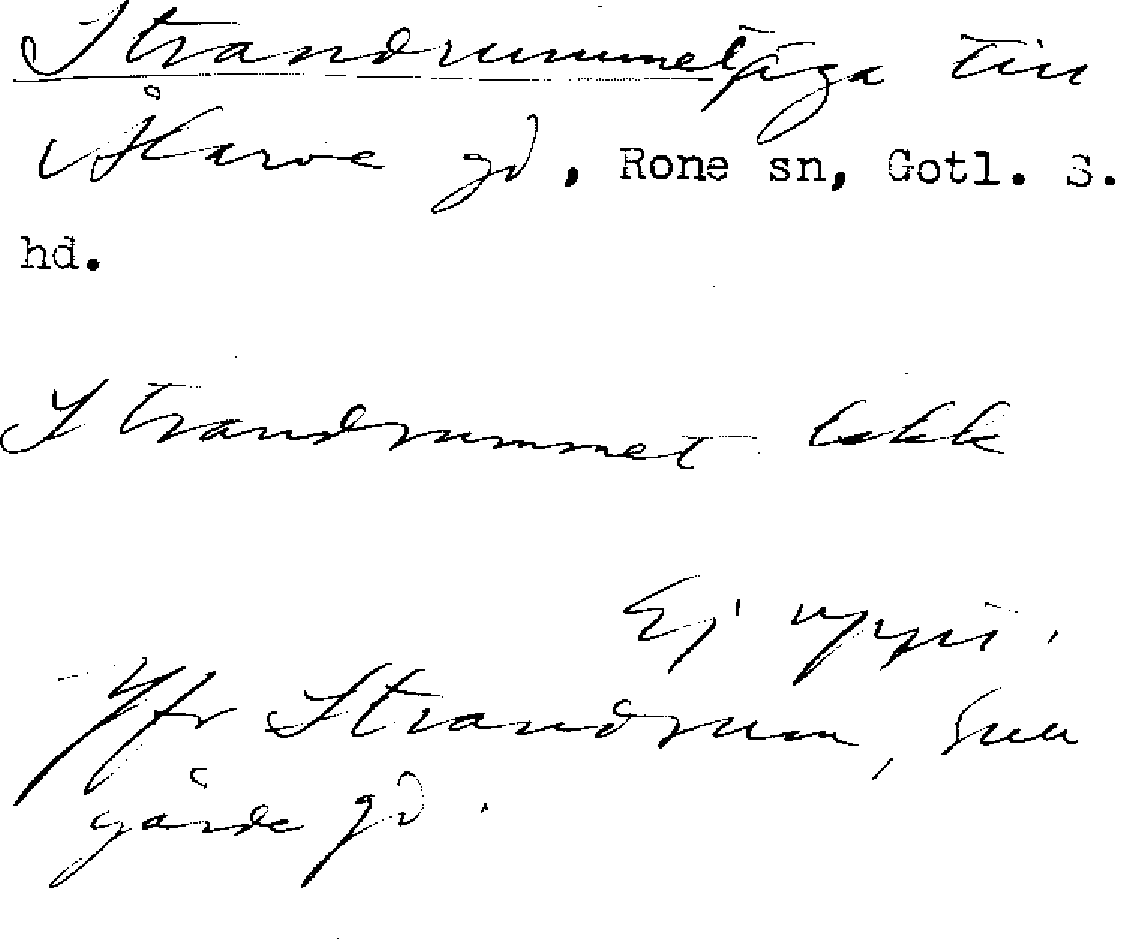 Strandrummet, äga till
Åkarve gd, Rone sn, Gotl. S.
hd.
Strandrummet lokk
Ej uppt.
Jfr Strandrum,
gårde gd.